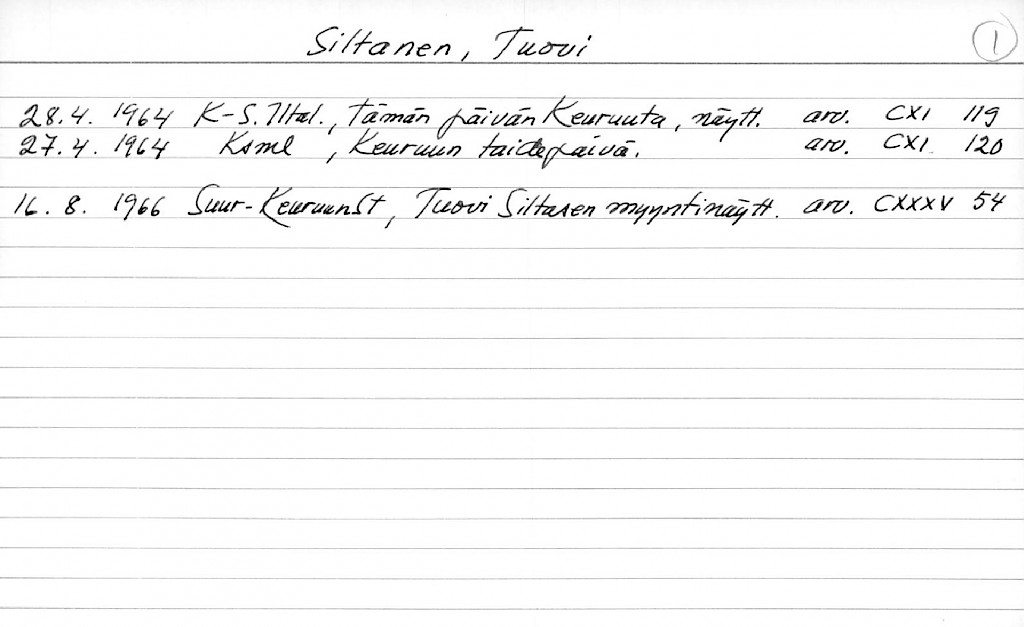 Siltanen, Tuovi 1
28.4. 1964 K-S. Iltal., Tämän päivän Keuruuta, näytt. arv. CXI 119
27.4. 1964 Ksml, Keuruun taidepäivä. arv. CXI 120
16.8. 1966 Suur-KeuruunSt, Tuovi Siltasen myyntinäytt. arv. CXXXV 54